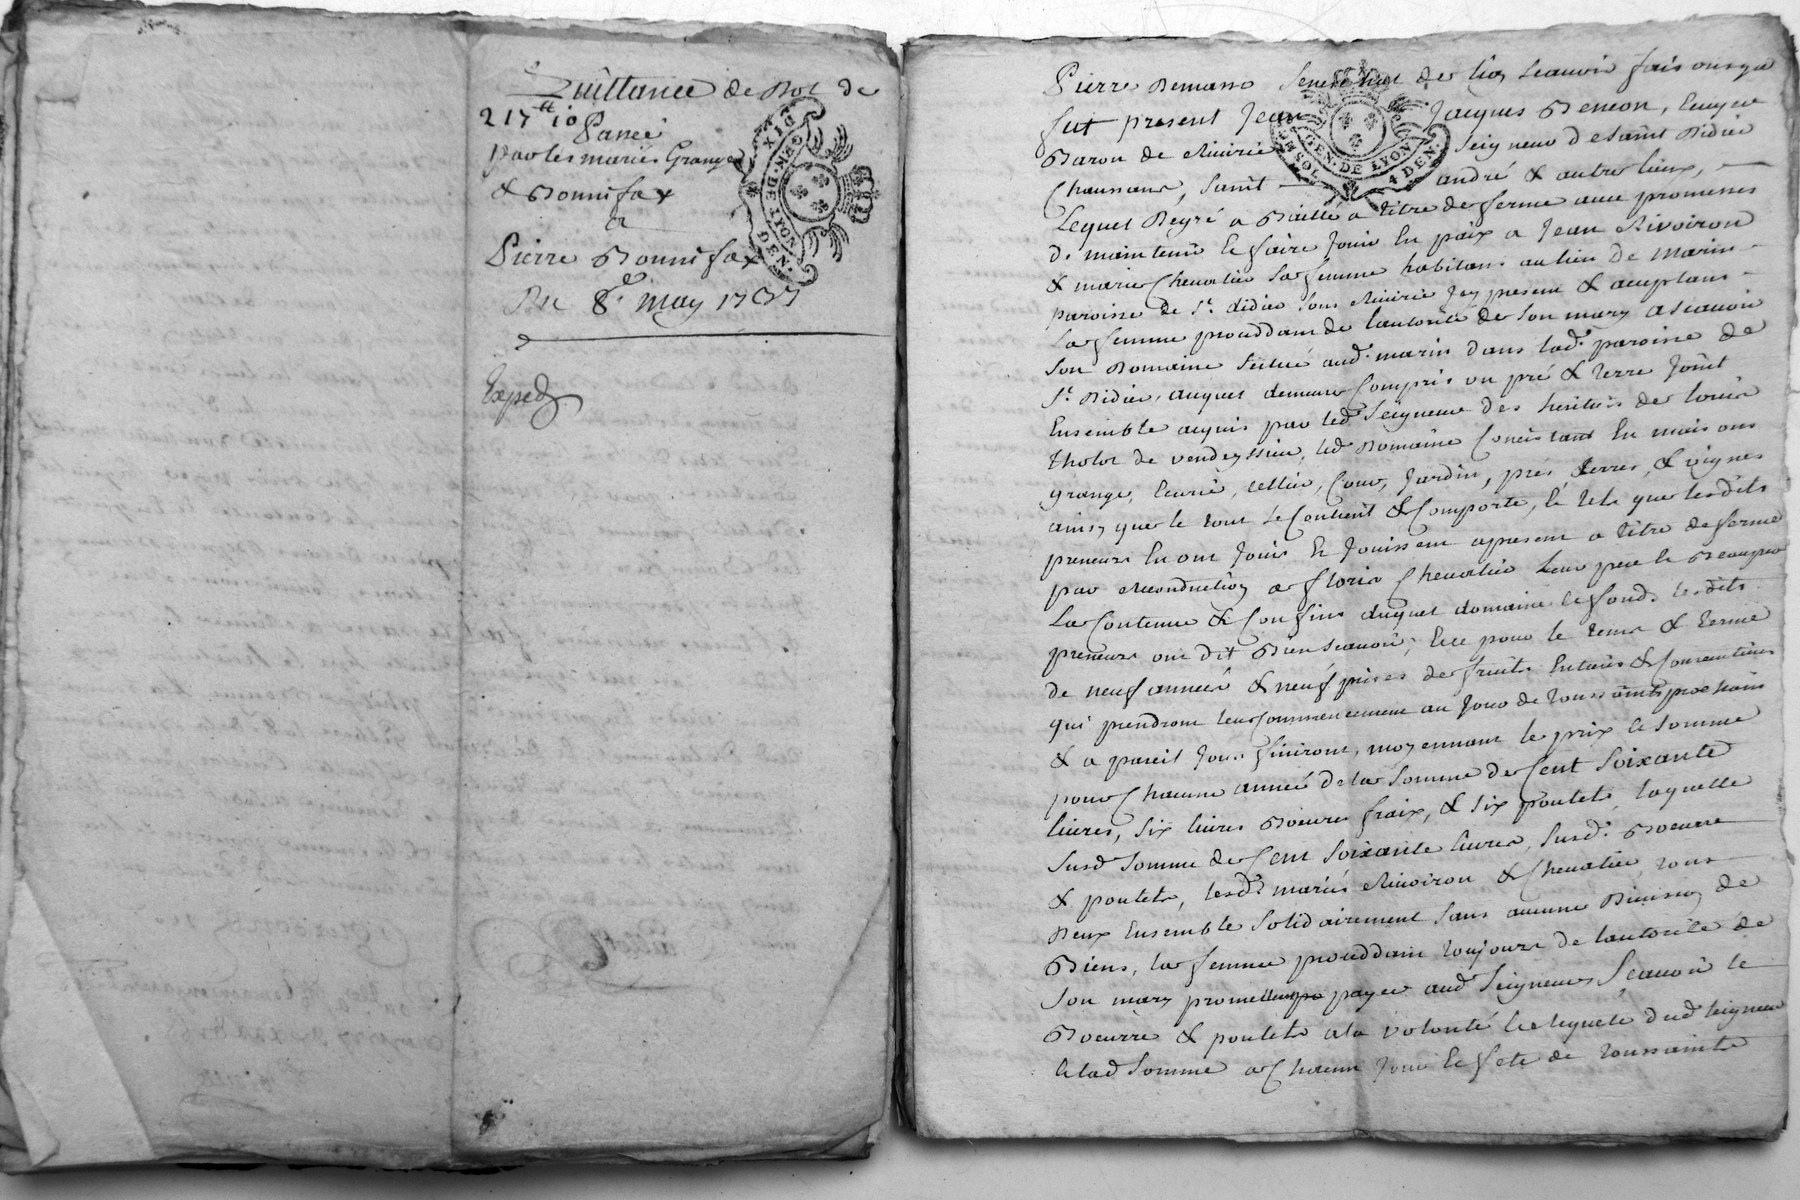 Quittance de Dot de
217tt 10
Passée
Par les mariés Grange
& Bonnifax
a
Pierre Bonnifax
Du 8e. may 1737
Exped
GEN·DE·LYON
DIX
DEN·
Pierre Demasso Senechal de Lion Scavoir fais ons que
fut present Jean Jacques Deneon, Ecuyer
Baron de Riverie Seigneur de Saint Didier
Chaussans, Saint andré & autres lieux,
GEN·DE·LYON
SOL 4 DEN·
Lequel De gré a Baillé a titre de ferme avec promesses
de maintenir & faire Jouir En paix a Jean Rivoiron
& marie Chevalier Sa femme habitans au lieu de Marin
paroisse de St. didier Sous Riverie Icy presens & acceptans
La femme proceddant de Lautorité de Son mary ascavoir
Son Domaine Scitué aud. marin dans lad. paroisse de
St. Didier, auquel demeure Compris un pré & terre Joint
Ensemble acquis par led. Seigneur des heritiers de Louis
tholot de vendeyssieu, led Domaine Concistant En maisons
grange, Ecurie, cellier, Cour, Jardin, prés, terres, & vignes
ainsy que le tout Se Contient & Comporte, & tels que lesdits
preneurs En ont Jouis & Jouissent apresent a titre de ferme
par Reconduction a floris Chevalier Leur pere & Beaupere
La Contenue & Confins duquel domaine & fonds lesdits
preneurs ont dit Bien Scavoir, & ce pour le tems & terme
de neuf années & neuf prises de fruits Entiers & Consecutives
qui prendront leur Commencement au Jour de toussaints prochain
& a pareil Jour finiront, moyennant le prix & Somme
pour Chacune année de la Somme de Cent Soixante
livres, six livres Boeurre fraix, & six poulets, laquelle
Susd Somme de Cent Soixante livres, Susd. Boeurre
& poulets, lesd. mariés Rivoiron & Chevalier, tous
Deux Ensemble Solidairement Sans aucune Division de
Biens, la femme proceddant toujours de lautorité de
Son mary promettent payer aud Seigneur Scavoir le
Boeurre & poulets a la volonté & requete dud Seigneur
& lad Somme a Chacun Jour & fete de toussaints